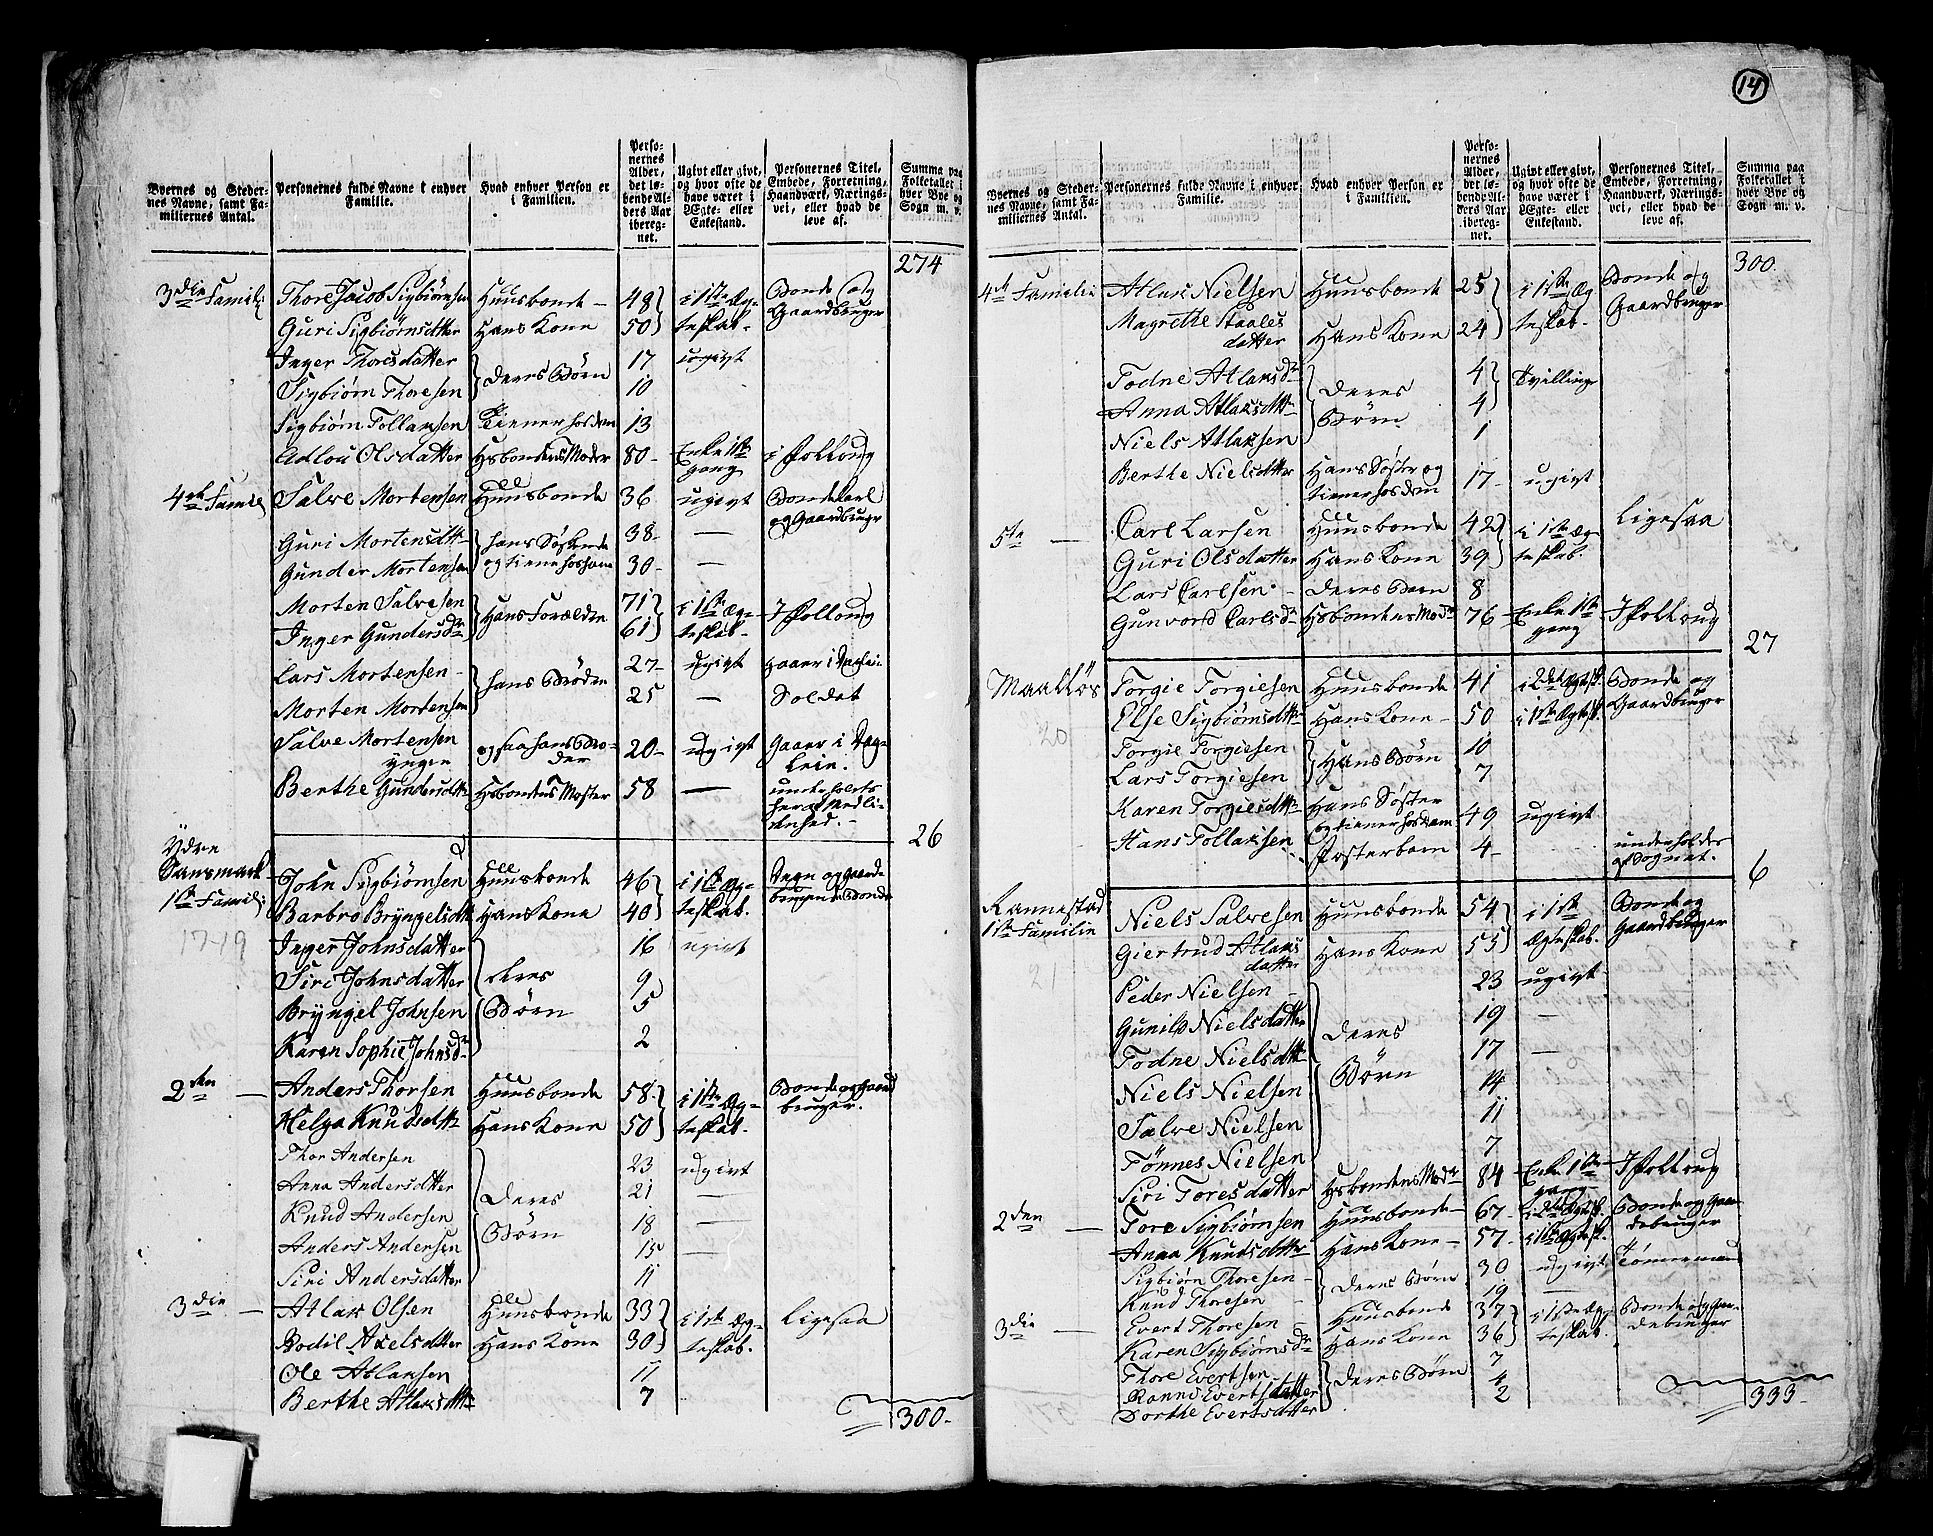 14
Byernes og Stedernes Navne, samt Familiernes Antal.
Personernes fulde Navne i enhver Familie.
Hvad enhver Person er i Familien.
Personernes Alder, det løbende Alders Aar iberegnet.
Ugivt eller givt, og hvor ofte de have været i Ægte- eller Enkestand.
Personernes Titel, Embede, Forretning, Haandværk, Næringsvei, eller hvad de leve af.
Summa paa Folketallet i hver Bye og Sogn m. v.
274
3die Famil: Thore Jacob Sigbiørnsen Huusbonde 48 i 1ste Æg- Bonde og
Guri Sigbiørnsdatter Hans Kone 50 teskab. Gaardbruger
Inger Thoresdatter 17 ugivt
Sigbiørn Thoresen deres Børn 10
Sigbiørn Tollaksen Tiener hos dem 13
Adlou Olsdatter Hsbondens Moder 80 Enke 1ste gang i Folloug
4de Famile Salve Mortensen Huusbonde 36 ugivt Bondekarl og Gaardbruger
Guri Mortensdtr hans Søskende 38 —
Gunder Mortensen og tiene hos ham 30 —
Morten Salvesen Hans Forældre 71 i 1ste Æg- I Folloug
Inger Gundersdr 61 teskab.
Lars Mortensen hans Brødre 27 ugivt gaaer i Dagleie
Morten Mortensen 25 — Soldat
Salve Mortensen yngre ogsaa hans Broder 20 ugivt Gaaer i Dagleie.
Berthe Gundersdtr Hsbondens Moster 58 — underholdes her af Medlidenhed.
26
Ydre
1ste Famil: John Sigbiørnsen Huusbonde 46 i 1ste Æg- Degn og gaard-
Barbro Bryngelsdtr Hans Kone 40 teskab. brugende Bonde
17-19
Inger Johnsdatter 16 ugivt
Siri Johnsdatter deres 9
Bryngel Johnsen Børn 5
Karen Sophie Johnsdr 2
2den — Anders Thorsen Huusbonde 58 i 1ste Æg- Bonde og gaard
Helga Knudsdtr Hans Kone 50 teskab. bruger.
Thor Andersen 23 ugivt
Anna Andersdatter 21 —
Knud Andersen Deres 18 —
Anders Andersen Børn 15 —
Siri Andersdatter 11
3die — Atlak Olsen Huusbonde 33 i 1ste Æg- Ligesaa
Bodil Axelsdatter Hans Kone 30 teskab.
Ole Atlaksen 11
Berthe Atlaksdtr 7
300
Byernes og Stedernes Navne, samt Familiernes Antal.
Personernes fulde Navne i enhver Familie.
Hvad enhver Person er i Familien.
Personernes Alder, det løbende Alders Aar iberegnet.
Ugivt eller givt, og hvor ofte de have været i Ægte- eller Enkestand.
Personernes Titel, Embede, Forretning, Haandværk, Næringsvei, eller hvad de leve af.
Summa paa Folketallet i hver Bye og Sogn m. v.
300
4de Familie Atlak Nielsen Huusbonde 25 i 1ste Æg Bonde og
Magrethe Staalesdatter Hans Kone 24 teskab. Gaardbruger
Todne Atlaksdr 4 Tvillinge
Anna Atlaksdtr deres 4
Niels Atlaksen Børn 1
Berthe Nielsdatter Hans Søster og tiener hos dem 17 ugivt
5te — Carl Larsen Huusbonde 42 i 1ste Æg Ligesaa
Guri Olsdatter Hans Kone 39 teskab.
Lars Carlsen deres Barn 8
Gunvord Carlsdr Hsbondens Modr 76 Enke 1ste gang I Folloug
27
Torgie Torgiesen Huusbonde 41 i 2det Ægtesk. Bonde og
Else Sigbiørnsdtr Hans Kone 50 i 1ste Ægtesk. Gaardbruger
20
Torgie Torgiesen Hans Børn 10
Lars Torgiesen 7
Karen Torgiesdtr Hans Søster og tiener hos dem 49 ugivt
Hans Tollaksen Fosterbarn 4 underholdes af Sognet.
6
Rannestad
1ste Familie Niels Salvesen Huusbonde 54 i 1ste Bonde og
Giertrud Atlaks datter Hans Kone 55 Ægteskab. Gaardbruger
21
Peder Nielsen 23 ugivt
Gunild Nielsdatter 19 —
Todne Nielsdtr Deres 17 —
Niels Nielsen Børn 14
Salve Nielsen 11
Tønnes Nielsen 7
Siri Toresdatter Hsbondens Modr 84 Enke 1ste gang I Folloug
2den — Tore Sigbiørnsen Huusbonde 67 i 2det Ægtesk. Bonde og Gaar-
Anna Knudsdatter Hans Kone 57 i 1ste Ægtesk. debruger
Sigbiørn Thoresen deres Børn 30 ugivt Tømermand
Knud Thoresen 19 —
3die — Evert Thoresen Huusbonde 37 i 1ste Æg Bonde og Gaar-
Karen Sigbiørnsdr Hans Kone 36 teskab. debruger
Thore Evertsen 7
Evertsdatter deres Børn 4
Dorthe Evertsdatter 2
333